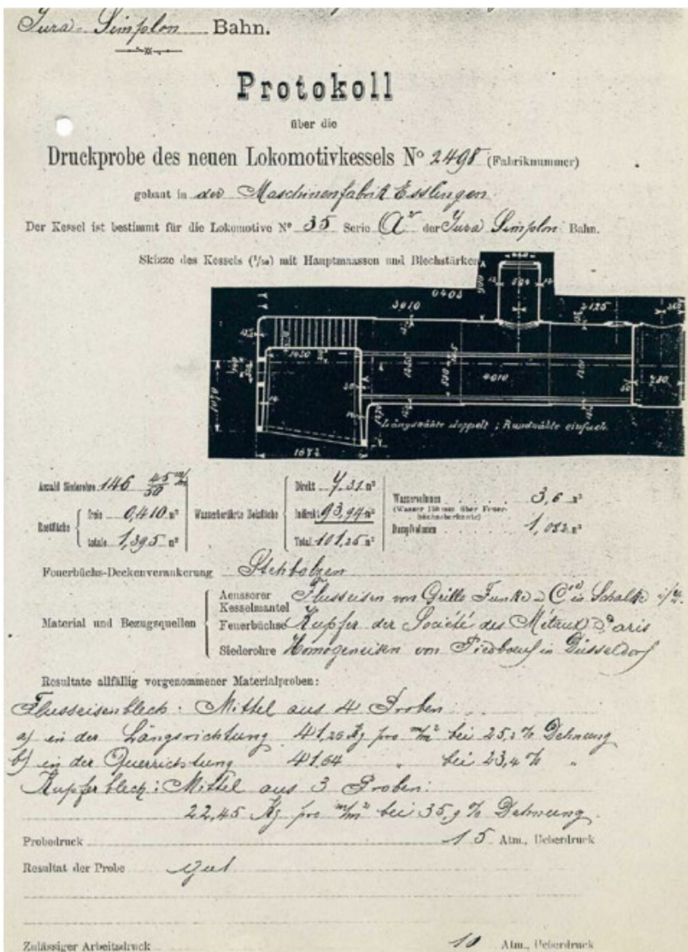 Jura-Simplon Bahn.
Protokoll
über die
Druckprobe des neuen Lokomotivkessels No 2498 (Fabriknummer)
gebaut in der Maschinenfabrik Esslingen
Der Kessel ist bestimmt für die Lokomotive No 35 Serie der Jura Simplon Bahn.
Skizze des Kessels (1/50) mit Hauptmaassen und Blechstärken
3910
2125
1420
4010
1070
1672
Längsnähte doppelt; Rundnähte einfach
Anzahl Siederohre 146 45/50 m/m
Rostfläche
freie 0,410 m²
totale 1,395 m²
Wasserberührte Heizfläche
Direkt 7,31 m²
Indirekt 93,94 m²
Total 101,25 m²
Wasservolumen 3,6 m³
(Wasser 150 mm über Feuerbüchsoberkante)
Dampfvolumen
Feuerbüchs-Deckenverankerung Stehbolzen
Material und Bezugsquellen
Aeusserer Kesselmantel Flusseisen von Grillo Funke & Cie in Schalke
Feuerbüchse Kupfer der Société des Métaux Paris
Siederohre Homogeneisen von Piedboeuf in Düsseldorf
Resultate allfällig vorgenommener Materialproben:
Flusseisenblech: Mittel aus 4 Proben:
a) in der Längsrichtung 41,25 Kg pro m/m² bei 25,2 % Dehnung
b) in der Querrichtung 41,64 " bei 23,4 % "
Kupferblech: Mittel aus 3 Proben:
22,45 Kg pro m/m² bei 35,9 % Dehnung.
Probedruck 15 Atm., Ueberdruck
Resultat der Probe gut
Zulässiger Arbeitsdruck 10 Atm., Ueberdruck